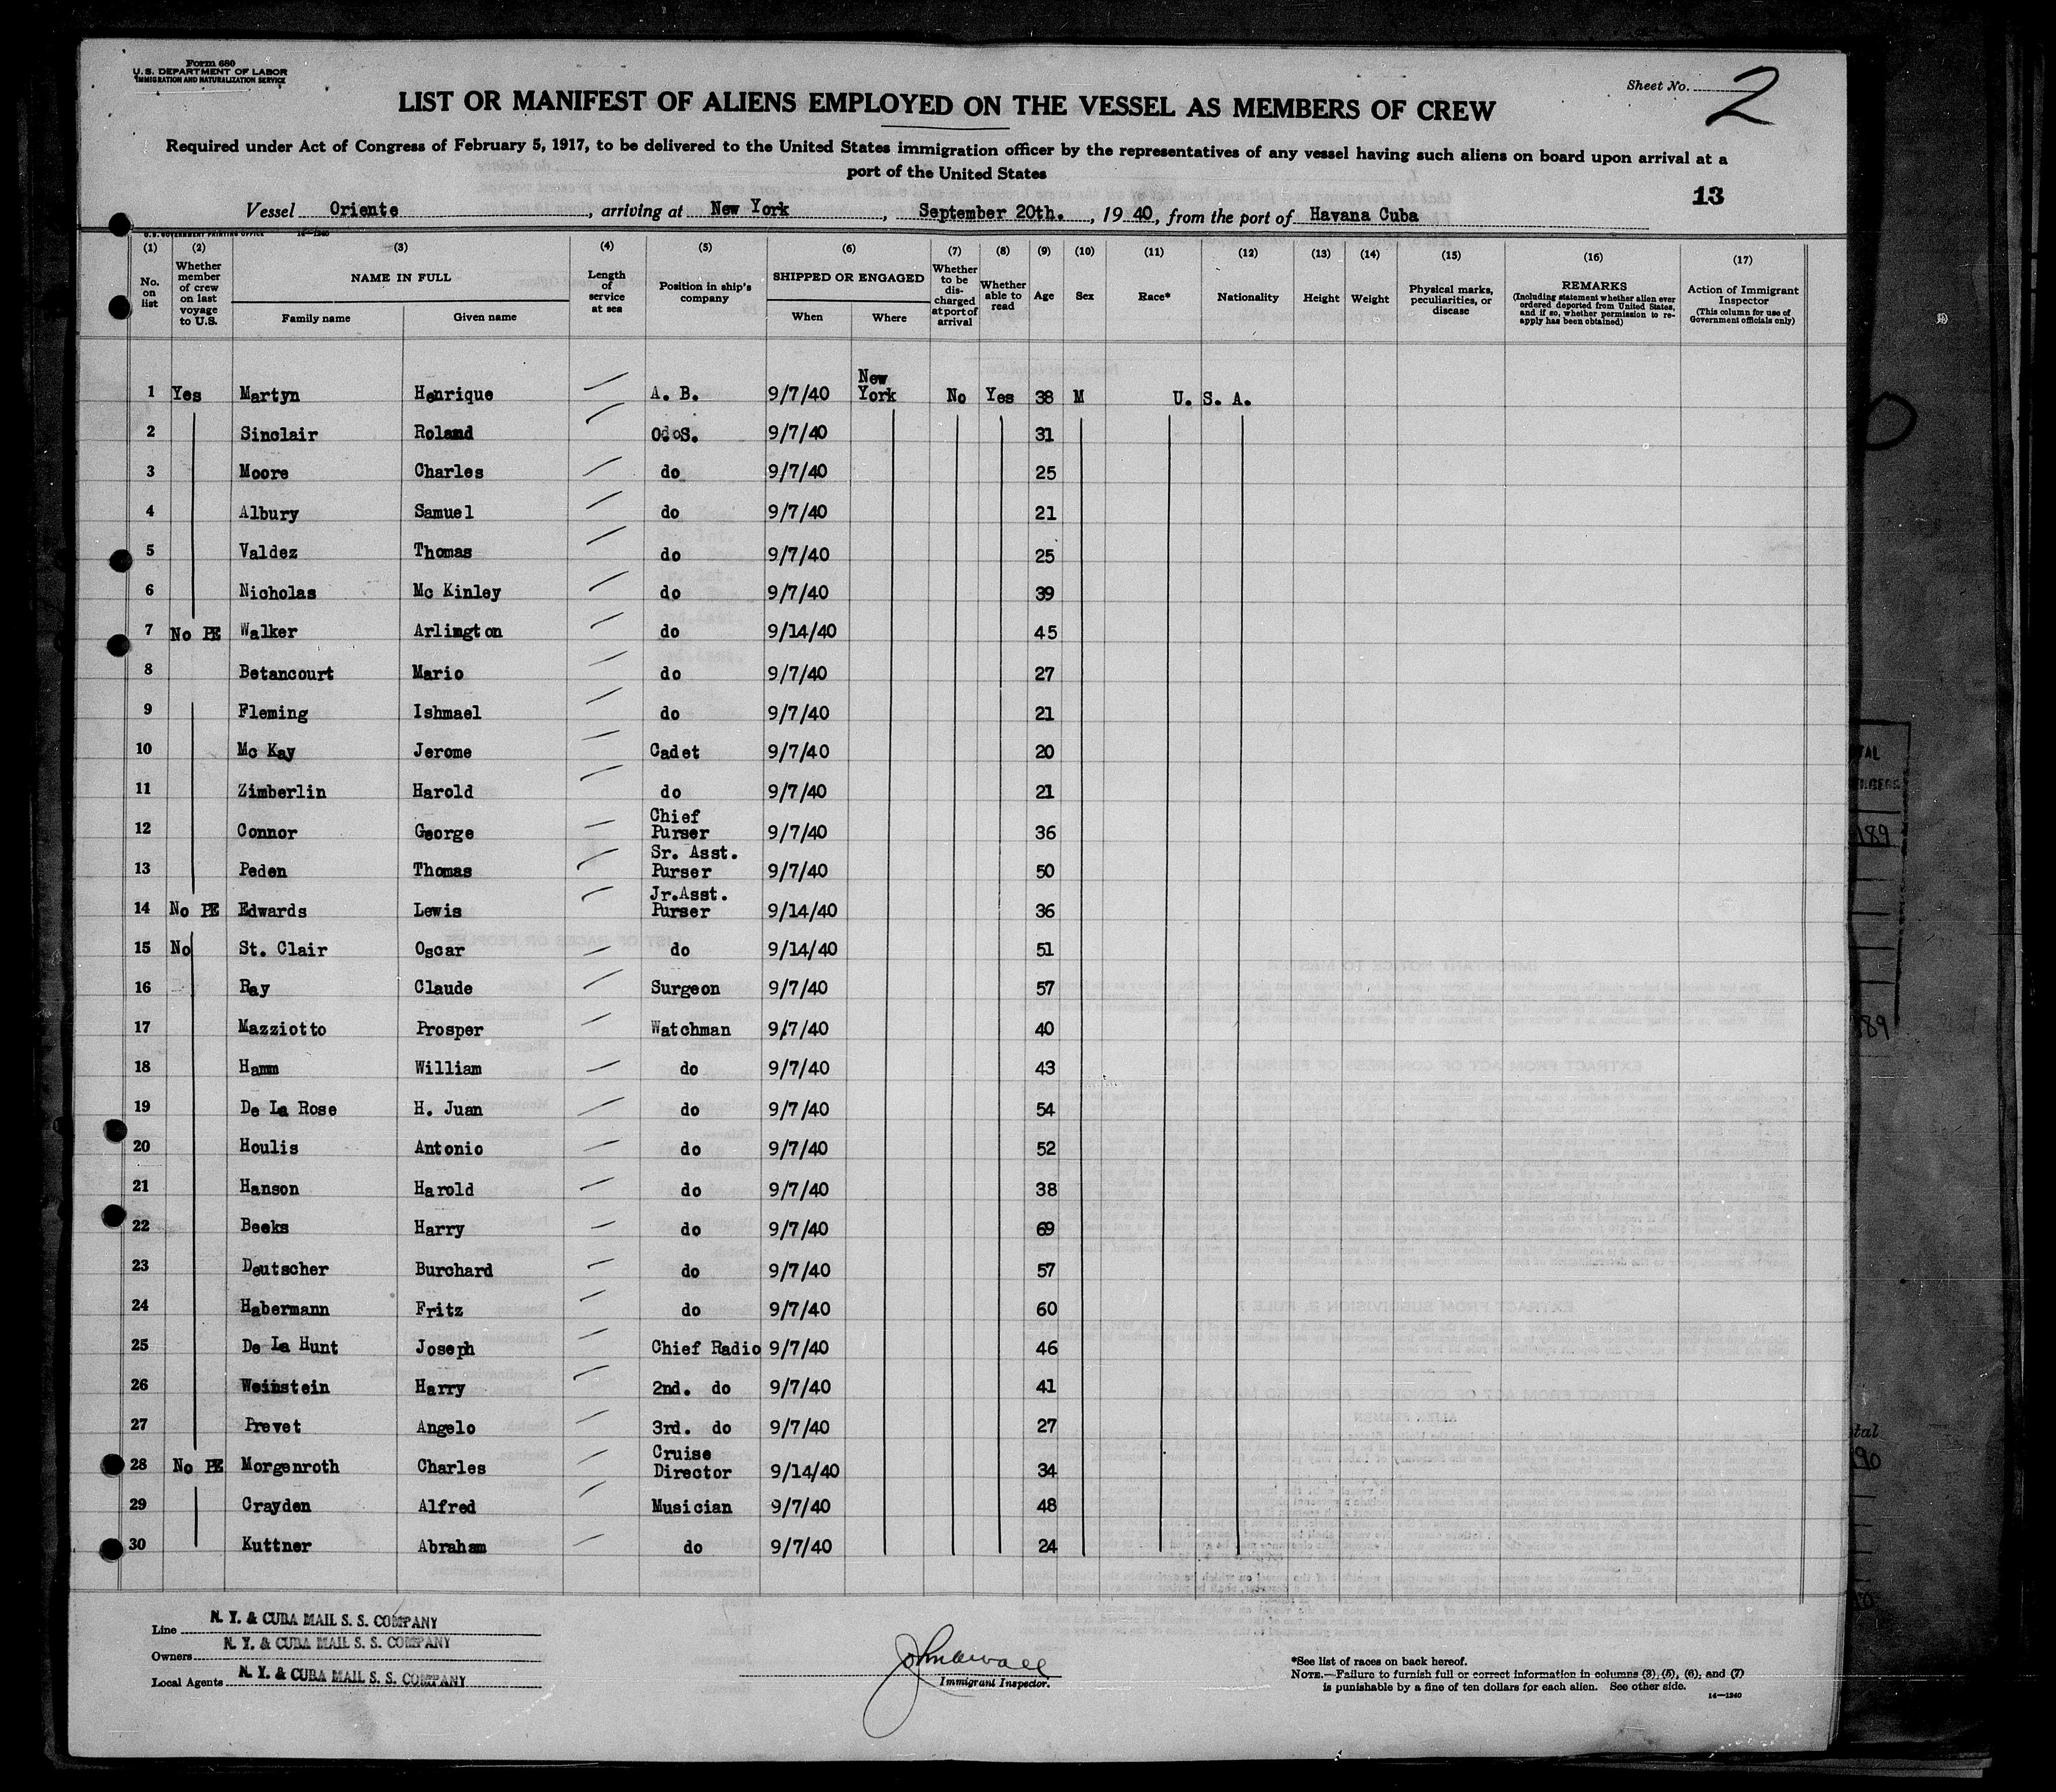 Form 680
U. S. DEPARTMENT OF LABOR
IMMIGRATION AND NATURALIZATION SERVICE
Sheet No. 2
LIST OR MANIFEST OF ALIENS EMPLOYED ON THE VESSEL AS MEMBERS OF CREW
Required under Act of Congress of February 5, 1917, to be delivered to the United States immigration officer by the representatives of any vessel having such aliens on board upon arrival at a
port of the United States
13
Vessel Oriente, arriving at New York, September 20th., 1940, from the port of Havana Cuba
U. S. GOVERNMENT PRINTING OFFICE 14—1240
(1) (2) (3) (4) (5) (6) (7) (8) (9) (10) (11) (12) (13) (14) (15) (16) (17)
No. on list
Whether member of crew on last voyage to U.S.
NAME IN FULL
Family name
Given name
Length of service at sea
Position in ship's company
SHIPPED OR ENGAGED
When
Where
Whether to be discharged at port of arrival
Whether able to read
Age
Sex
Race*
Nationality
Height
Weight
Physical marks, peculiarities, or disease
REMARKS
(Including statement whether alien ever ordered deported from United States, and if so, whether permission to re-apply has been obtained)
Action of Immigrant Inspector
(This column for use of Government officials only)
1 Yes Martyn Henrique A. B. 9/7/40 New York No Yes 38 M U. S. A.
2 Sinclair Roland O.S. 9/7/40 31
3 Moore Charles do 9/7/40 25
4 Albury Samuel do 9/7/40 21
5 Valdez Thomas do 9/7/40 25
6 Nicholas Mc Kinley do 9/7/40 39
7 No PE Walker Arlington do 9/14/40 45
8 Betancourt Mario do 9/7/40 27
9 Fleming Ishmael do 9/7/40 21
10 Mc Kay Jerome Cadet 9/7/40 20
11 Zimberlin Harold do 9/7/40 21
12 Connor George Chief Purser 9/7/40 36
13 Peden Thomas Sr. Asst. Purser 9/7/40 50
14 No PE Edwards Lewis Jr.Asst. Purser 9/14/40 36
15 No St. Clair Oscar do 9/14/40 51
16 Ray Claude Surgeon 9/7/40 57
17 Mazziotto Prosper Watchman 9/7/40 40
18 Hamm William do 9/7/40 43
19 De La Rose H. Juan do 9/7/40 54
20 Houlis Antonio do 9/7/40 52
21 Hanson Harold do 9/7/40 38
22 Beeks Harry do 9/7/40 69
23 Deutscher Burchard do 9/7/40 57
24 Habermann Fritz do 9/7/40 60
25 De La Hunt Joseph Chief Radio 9/7/40 46
26 Weinstein Harry 2nd. do 9/7/40 41
27 Prevet Angelo 3rd. do 9/7/40 27
28 No PE Morgenroth Charles Cruise Director 9/14/40 34
29 Crayden Alfred Musician 9/7/40 48
30 Kuttner Abraham do 9/7/40 24
Line N. Y. & CUBA MAIL S. S. COMPANY
Owners N. Y. & CUBA MAIL S. S. COMPANY
Local Agents N. Y. & CUBA MAIL S. S. COMPANY
Immigrant Inspector.
*See list of races on back hereof.
NOTE.—Failure to furnish full or correct information in columns (3), (5), (6), and (7)
is punishable by a fine of ten dollars for each alien. See other side.
14—1240